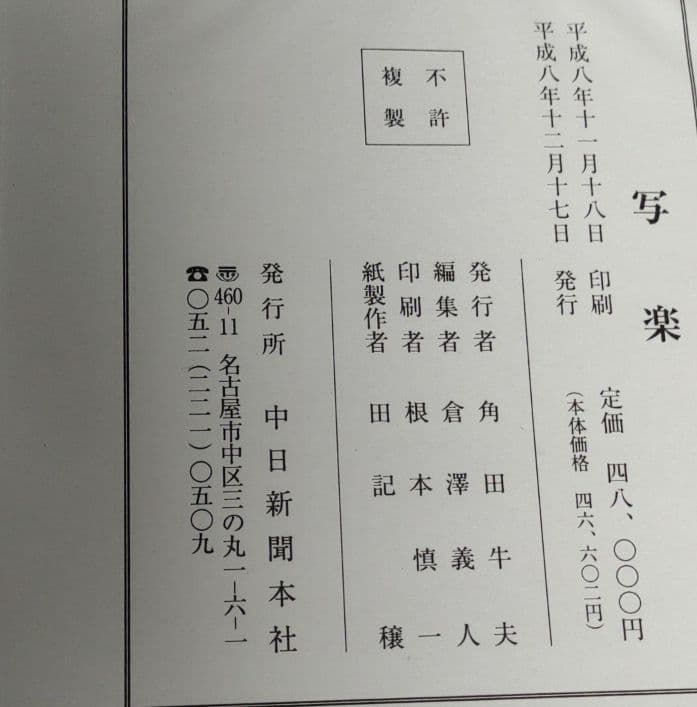 写楽
平成八年十一月十八日 印刷
平成八年十二月十七日 発行
定価 四八、〇〇〇円
(本体価格 四六、六〇二円)
不許
複製
発行者 角田牛夫
編集者 倉澤義人
印刷者 根本慎一
紙製作者 田記穣
発行所 中日新聞本社
〠460-11 名古屋市中区三の丸一-六-一
☎〇五二(二二一)〇五〇九